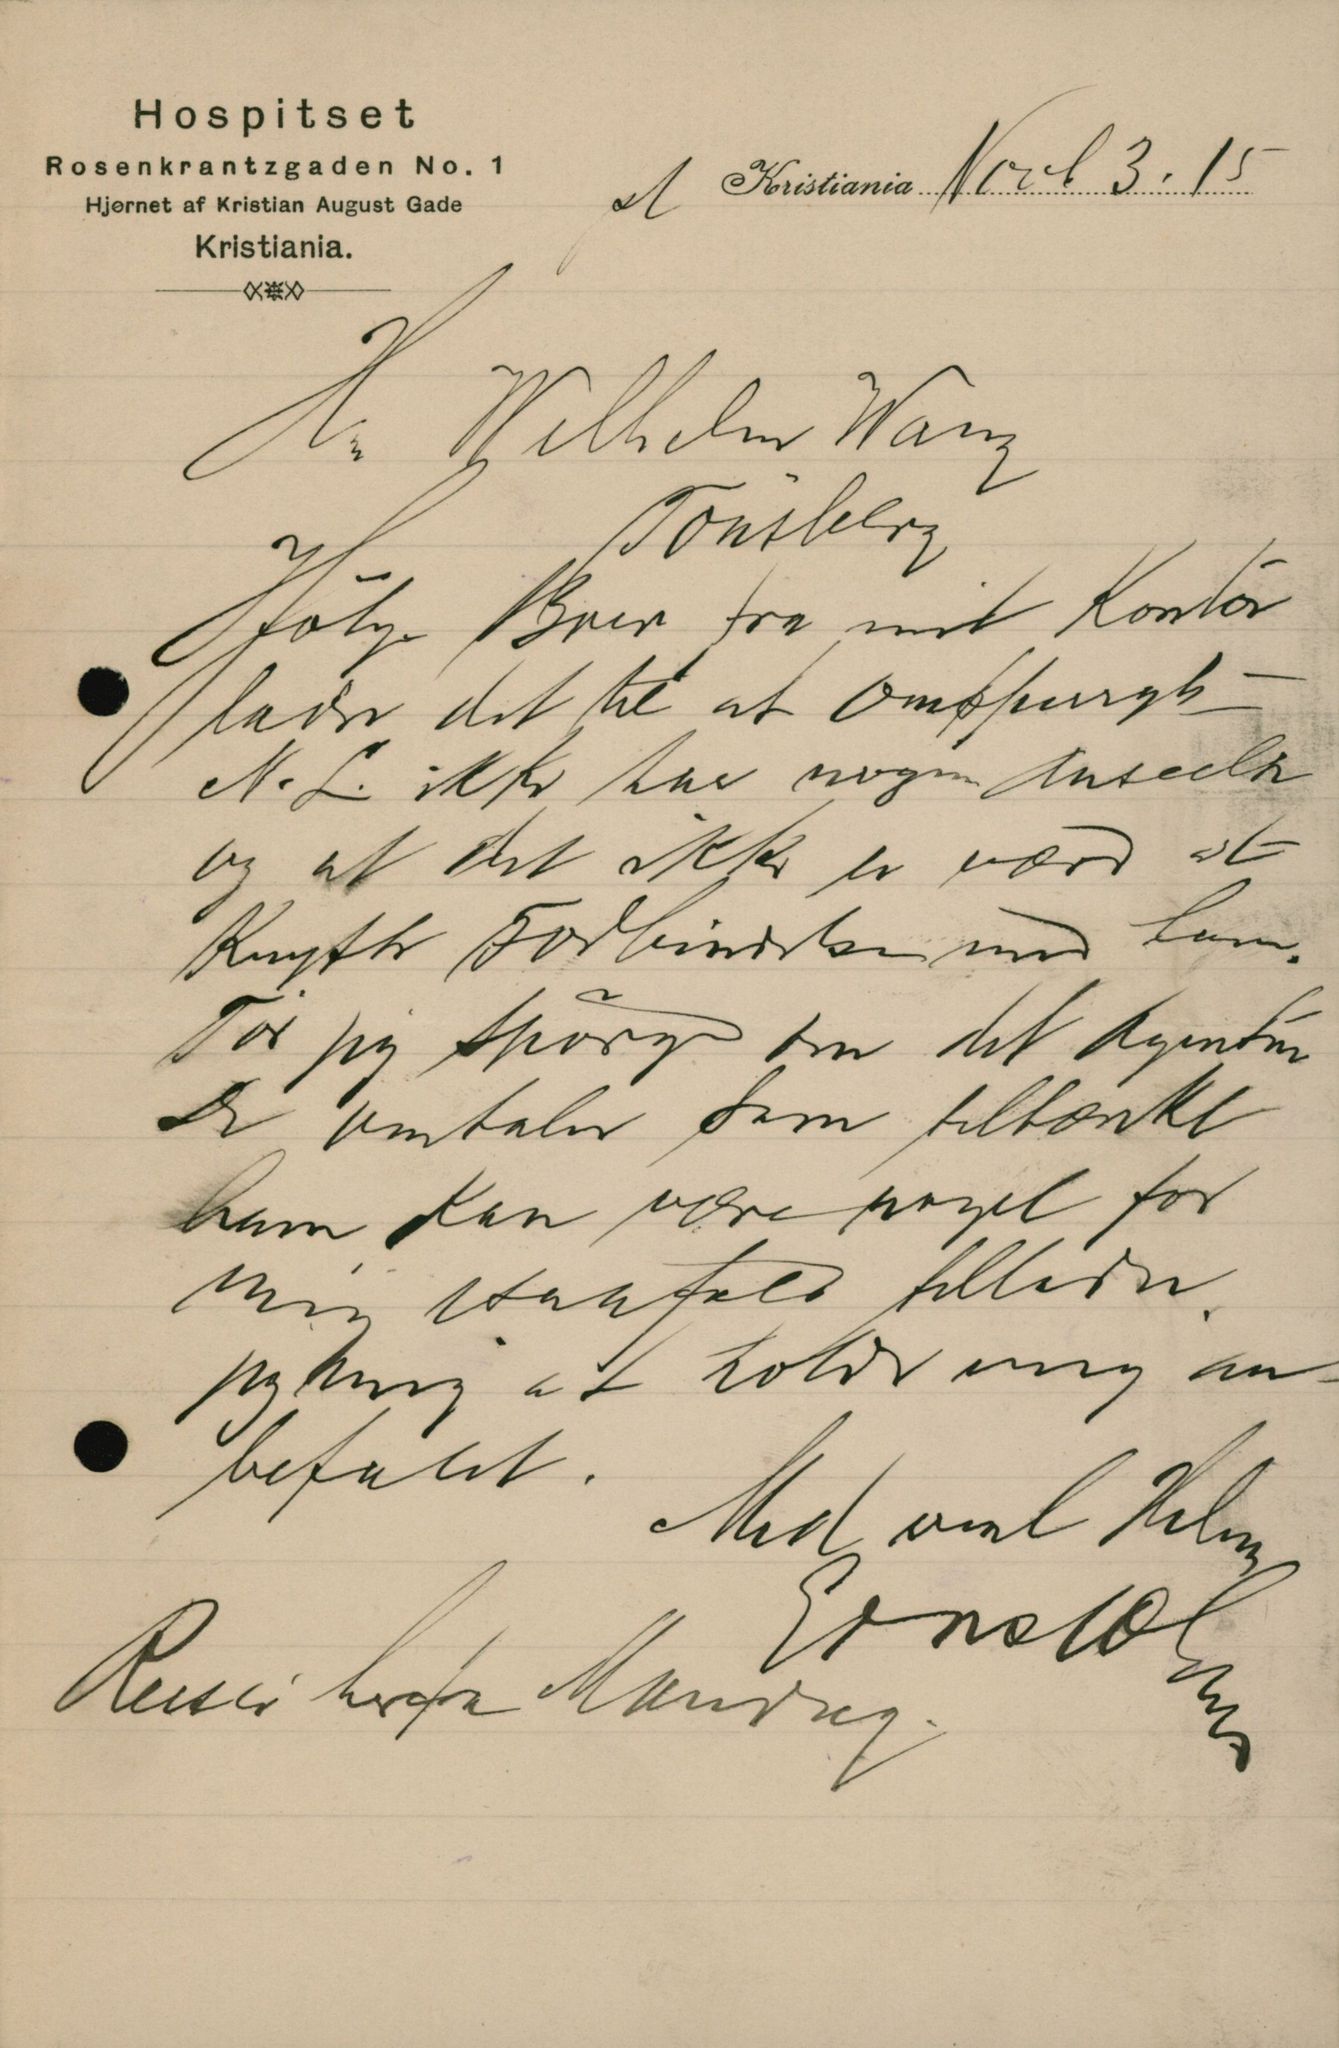 Hospitset
Rosenkrantzgaden No. 1
Hjørnet af Kristian August Gade
Kristiania.
Kristiania Novb 3. 15
Hr Wilhelm Wang
Tönsberg
Ifölge Brev fra mit Kontör
lader det til at omspurgt
N. L. ikke har nogen Anseelse
og at det ikke er værd at
Knytte Forbindelse med ham.
Tör jeg spörge om det Agentur
De omtaler som tiltænkt
ham kan være noget for
mig isaafald tillader
jeg mig at holde mig an-
befalet.
Med venl Hilsen
Ernst
Reiser herfra Mandag.